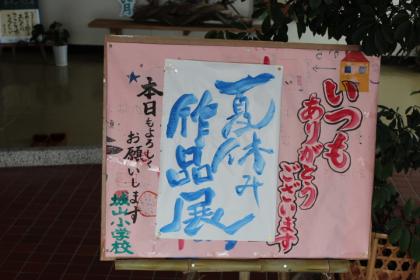 いつも
ありがとう
ございます
夏休み
作品展
本日もよろしく
お願いします
城山小学校